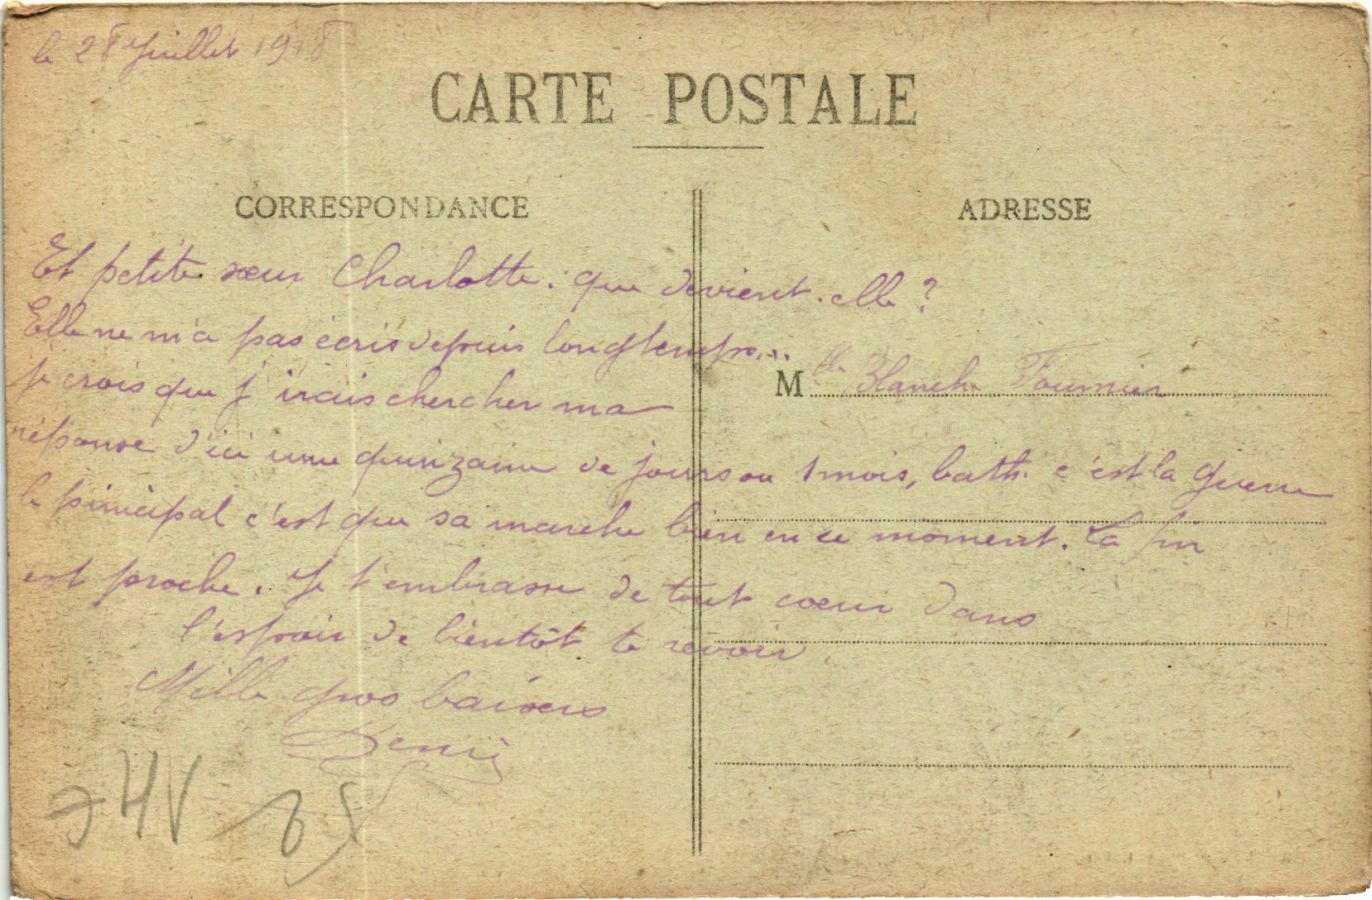 le 28 Juillet 1918
CARTE POSTALE
CORRESPONDANCE
ADRESSE
Et petite sœur Charlotte : que devient-elle ?
Elle ne m'a pas écris depuis longtemps...
Mlle Blanche Fournier
Je crois que j'irais chercher ma
réponse d'ici une quinzaine de jours ou 1 mois, bath. c'est la guerre
le pincipal c'est que sa marche bien en ce moment. La fin
est proche. Je t'embrasse de tout cœur dans
l'espoir de bientôt te revoir
Mille gros baisers